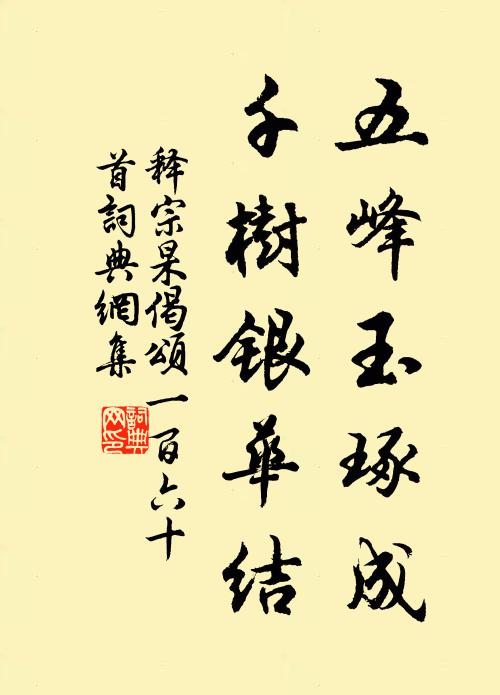 五峰玉琢成
千樹銀華結
释宗杲偈頌一百六十
首詞典網集
詞典
网印